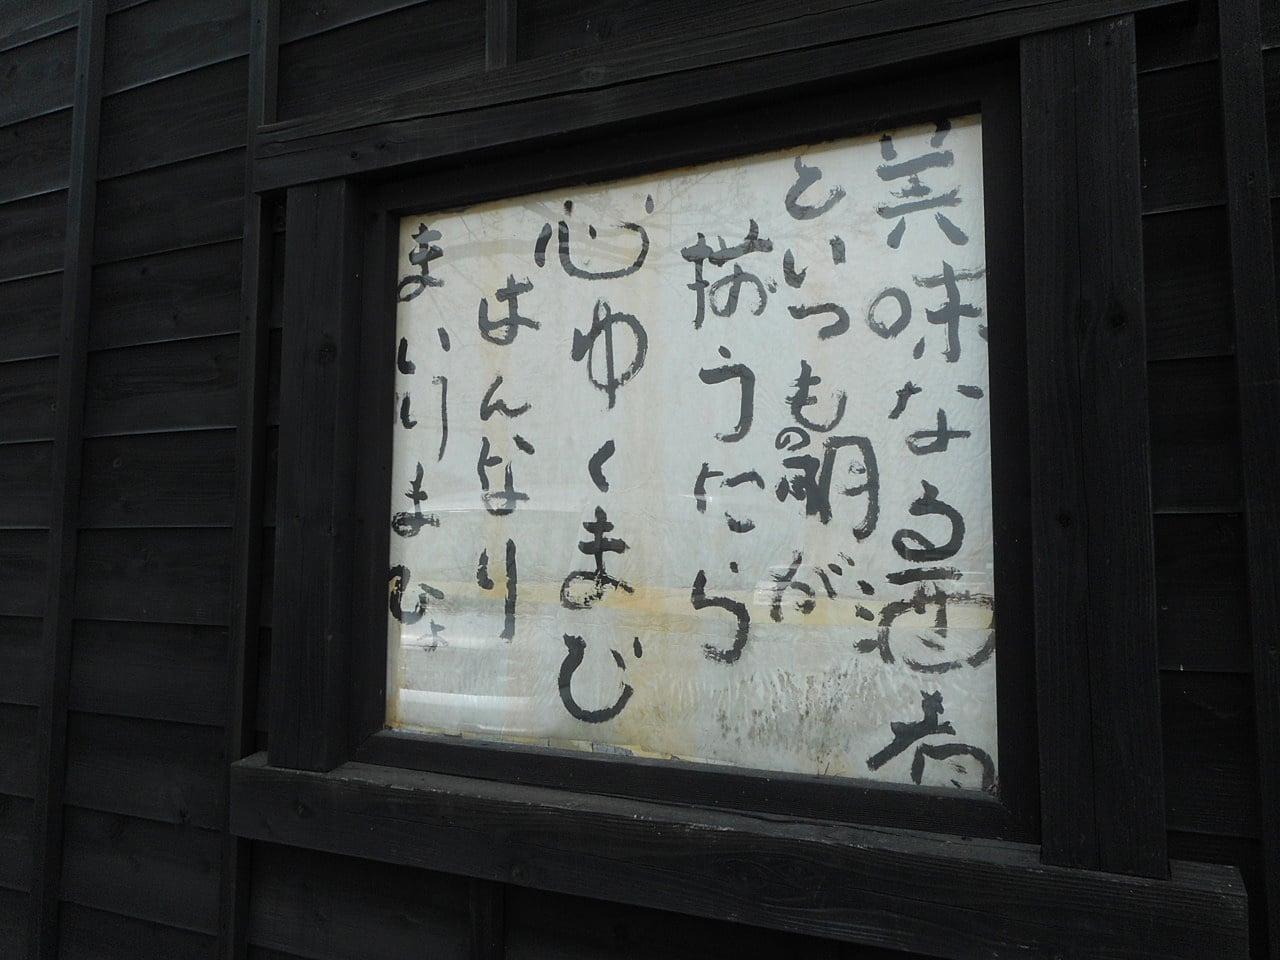 美味なる酒肴
といつもの朋が
揃うたら
心ゆくまで
はんなり
まいりまひょ